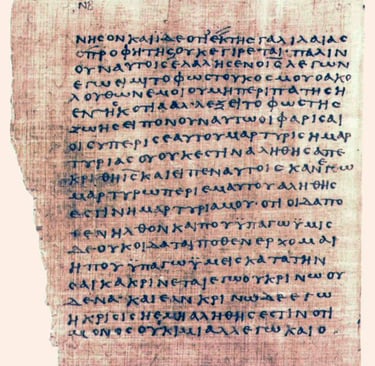 ΝΒ
ΝΗϹΟΝΚΑΙΙΔΕΟΤΙΕΚΤΗϹΓΑΛΙΛΑΙΑϹ
ΟΠΡΟΦΗΤΗϹΟΥΚΕΓΙΡΕΤΑΙ· ΠΑΛΙΝ
ΟΥΝΑΥΤΟΙϹΕΛΑΛΗϹΕΝΟΙϹΛΕΓΩΝ
ΕΓΩΕΙΜΙΤΟΦΩϹΤΟΥΚΟϹΜΟΥΟΑΚΟ
ΛΟΥΘΩΝΕΜΟΙΟΥΜΗΠΕΡΙΠΑΤΗϹΗ
ΕΝΤΗϹΚΟΤΙΑΑΛΛΕΞΕΙΤΟΦΩϹΤΗϹ
ΖΩΗϹΕΙΠΟΝΟΥΝΑΥΤΩΟΙΦΑΡΙϹΑΙ
ΟΙϹΥΠΕΡΙϹΕΑΥΤΟΥΜΑΡΤΥΡΙϹΗΜΑΡ
ΤΥΡΙΑϹΟΥΟΥΚΕϹΤΙΝΑΛΗΘΗϹΑΠΕ
ΚΡΙΘΗΙϹΚΑΙΕΙΠΕΝΑΥΤΟΙϹΚΑΝΕΓΩ
ΜΑΡΤΥΡΩΠΕΡΙΕΜΑΥΤΟΥΑΛΗΘΗϹ
ΕϹΤΙΝΗΜΑΡΤΥΡΙΑΜΟΥ·ΟΤΙΟΙΔΑΠΟ
ΘΕΝΗΛΘΟΝΚΑΙΠΟΥΥΠΑΓΩΫΜΙϹ
ΔΕΟΥΚΟΙΔΑΤΑΙΠΟΘΕΝΕΡΧΟΜΑΙ
ΗΠΟΥΥΠΑΓΩΫΜΕΙϹΚΑΤΑΤΗΝ
ϹΑΡΚΑΚΡΙΝΕΤΑΙΕΓΩΟΥΚΡΙΝΩΟΥ
ΔΕΝΑ·ΚΑΙΕΑΝΚΡΙΝΩΔΕΕΓΩ
ΗΚΡΙϹΙϹΗΕΜΗΑΛΗΘΗϹΕϹΤΙΝΟΤΙ
ΜΟΝΟϹΟΥΚΙΜΙΑΛΛΕΓΩΚΑΙΟ·